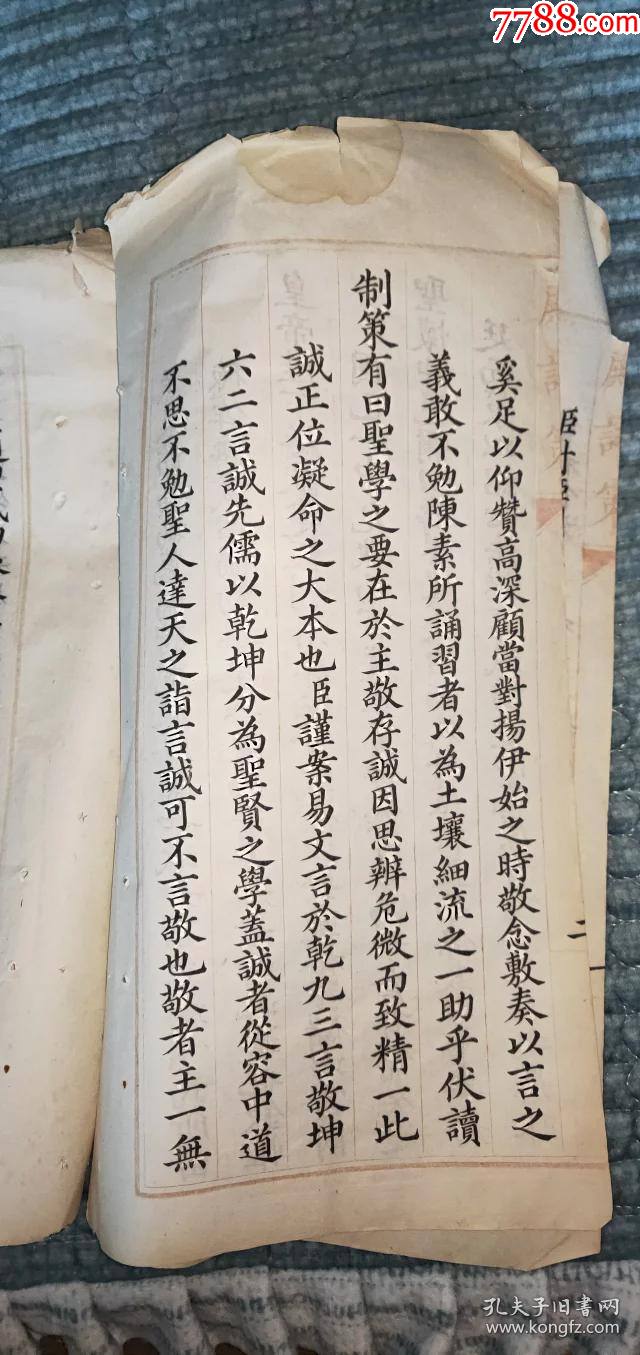 7788.com
奚足以仰贊高深顧當對揚伊始之時敬念敷奏以言之
義敢不勉陳素所誦習者以為土壤細流之一助乎伏讀
制策有曰聖學之要在於主敬存誠因思辨危微而致精一此
誠正位凝命之大本也臣謹案易文言於乾九三言敬坤
六二言誠先儒以乾坤分為聖賢之學蓋誠者從容中道
不思不勉聖人達天之詣言誠可不言敬也敬者主一無
二
一
孔夫子旧书网
www.kongfz.com